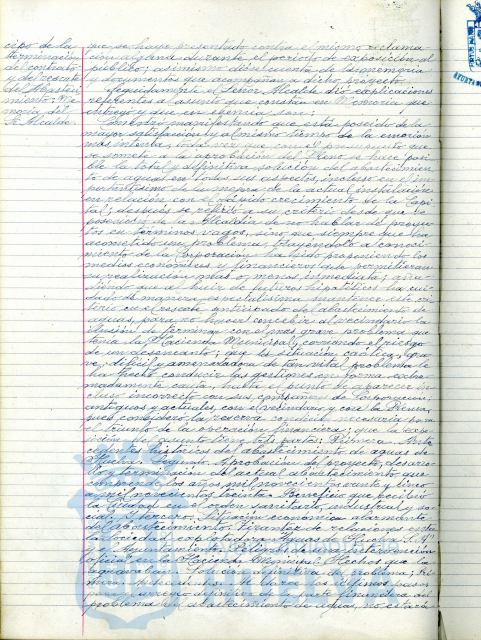 cipo de la
terminación
del contrato
y del rescate
del Abasteci
miento: Me
moria del
Sr. Alcalde.
que se haya presentado contra el mismo reclama
ción alguna durante el período de exposición al
público; asimismo dió cuenta de la memoria
y documentos que acompañan a dicho proyecto.
Seguidamente el Señor Alcalde dió explicaciones
referentes al asunto que constan en Memoria que
entregó y que en esencia son:
mayor satisfacción y al mismo tiempo de la emoción
mas intensa, toda vez que con el presupuesto que
se somete a la aprobación del Pleno se hace posi
ble la total y definitiva solución del abastecimien
to de aguas en todos sus aspectos, incluso en el im
portantísimo de la mejora de la actual instalación
en relación con el rápido crecimiento de la Capi
tal; después se refirió a su criterio desde que se
posesionó de la Alcaldía de no hablar del proyec
to en términos vagos, sino que siempre que ha
acometido un problema trayéndolo a conoci
miento de la Corporación ha sido proponiendo los
medios económicos y financieros que permitieran
su realización mas o menos inmediata; aña
diendo que al huir de futuros hipotéticos ha cui
dado de manera especialísima mantener este cri
terio en el rescate anticipado del abastecimiento de
aguas, para no hacer concebir al vecindario la
ilusión de terminar con el mas grave problema que
tenía la Hacienda Municipal, corriendo el riesgo
de un desencanto; que la situación caótica, gra
ve, difícil y amenazadora de tan vital problema le
ha hecho conducir la gestión en forma extre
madamente cauta, hasta el punto de aparecer in
cluso incorrecto con sus compañeros de Corporación,
antiguos y actuales, con el vecindario y con la Prensa,
pues consideró la reserva conducta necesaria para
el triunfo de la operación financiera; que la expo
sición del asunto tiene tres partes: Primera. Ante
cedentes históricos del abastecimiento de aguas de
Huelva. Segundo. Aprobación del proyecto, desarro
llo y terminación del actual abastecimiento que
comprende los años mil novecientos veinte y cinco
a mil novecientos treinta. Beneficio que recibió
la Ciudad en el orden sanitario, industrial y so
cial. Tercero. Aspecto económico alarmante
del abastecimiento. Tirantez de relaciones entre
la Sociedad explotadora Aguas de Huelva S. A.
y el Ayuntamiento. Peligro de una intervención
oficial en la Hacienda Municipal. Hechos que la
agravaban. Solución definitiva del problema;
para el arreglo definitivo de la parte financiera del
problema del abastecimiento de aguas, no estará